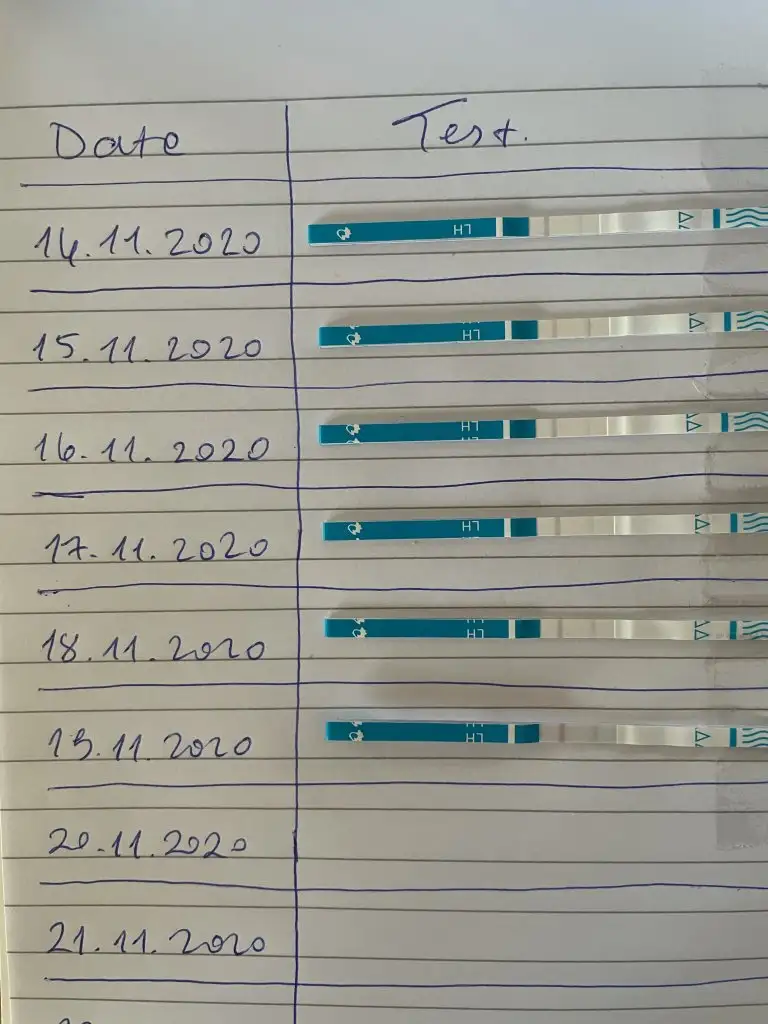 Date Test.
14.11.2020 LH
15.11.2020 LH
16.11.2020 LH
17.11.2020 LH
18.11.2020 LH
19.11.2020 LH
20.11.2020
21.11.2020